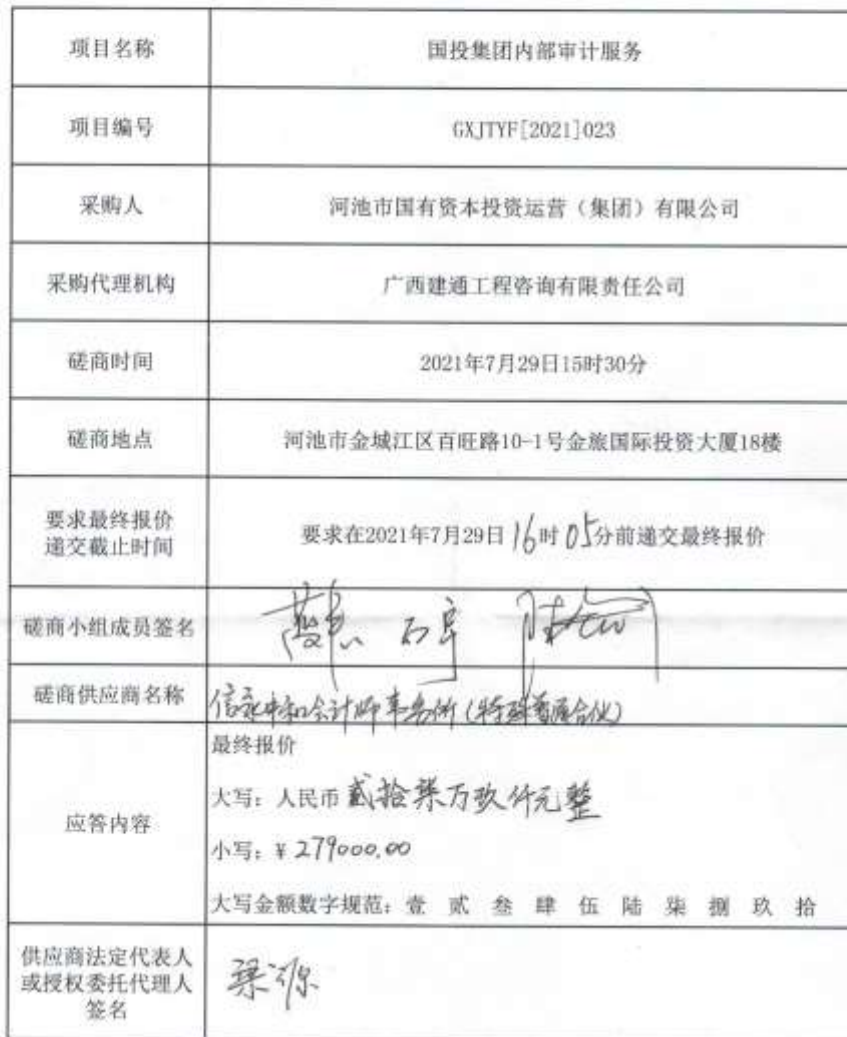 项目名称 国投集团内部审计服务
项目编号 GXJTYF[2021]023
采购人 河池市国有资本投资运营（集团）有限公司
采购代理机构 广西建通工程咨询有限责任公司
磋商时间 2021年7月29日15时30分
磋商地点 河池市金城江区百旺路10-1号金旅国际投资大厦18楼
要求最终报价
递交截止时间
要求在2021年7月29日16时05分前递交最终报价
磋商小组成员签名
磋商供应商名称 信永中和会计师事务所(特殊普通合伙)
应答内容
最终报价
大写：人民币贰拾柒万玖仟元整
小写：¥279000.00
大写金额数字规范：壹 贰 叁 肆 伍 陆 柒 捌 玖 拾
供应商法定代表人
或授权委托代理人
签名
梁源